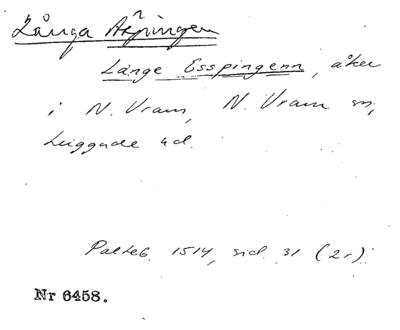 Långa Äspingen
Länge Esspingenn, åker
i N. Vram, N. Vram sn,
Luggude hd.
Palteb. 1514, sid. 31 (2r).
Nr 6458.